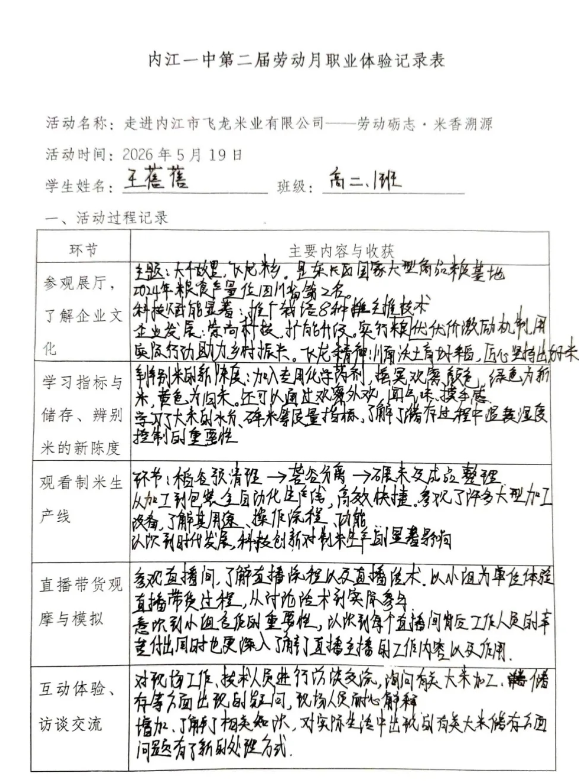 内江一中第二届劳动月职业体验记录表
活动名称：走进内江市飞龙米业有限公司——劳动砺志·米香溯源
活动时间：2026年5月19日
学生姓名：王蓓蓓 班级：高二、1班
一、活动过程记录
环节 主要内容与收获
参观展厅，
了解企业文
化
主题：大千故里，飞龙米乡。是东兴区国家大型商品粮基地
2024年粮食产量位四川省第2名。
科技赋能显著：推广栽培8种主推技术
企业发展：崇尚科技，扩能升级，实行粮优优价激励机制，用
实际行动助力乡村振兴。飞龙精神：川南沃土育好稻，匠心坚持出好米
学习指标与
储存、辨别
米的新陈度
辨别米的新陈度：加入专用化学药剂，摇晃观察颜色，绿色为新
米，黄色为旧米。还可以通过观察外观，闻气味，摸手感
学习了大米的水分、碎米等质量指标，了解了储存过程中温度湿度
控制的重要性
观看制米生
产线
环节：稻谷预清理→砻谷分离→碾米及成品整理
从加工到包装全自动化生产线，高效快捷。参观了许多大型加工
设备，了解其用途、操作流程、功能
认识到时代发展，科技创新对制米生产的显著影响
直播带货观
摩与模拟
参观直播间，了解直播流程以及直播话术。以小组为单位体验
直播带货过程，从讨论话术到实际参与
意识到小组合作的重要性，认识到每个直播间背后工作人员的辛
苦付出同时也更深入了解了直播主播的工作内容以及作用.
互动体验、
访谈交流
对现场工作、技术人员进行访谈交流，询问有关大米加工、储
存等方面出现的疑问，现场人员耐心解释
增加、了解了相关知识，对实际生活中出现的有关大米储存方面
问题有了新的处理方式.